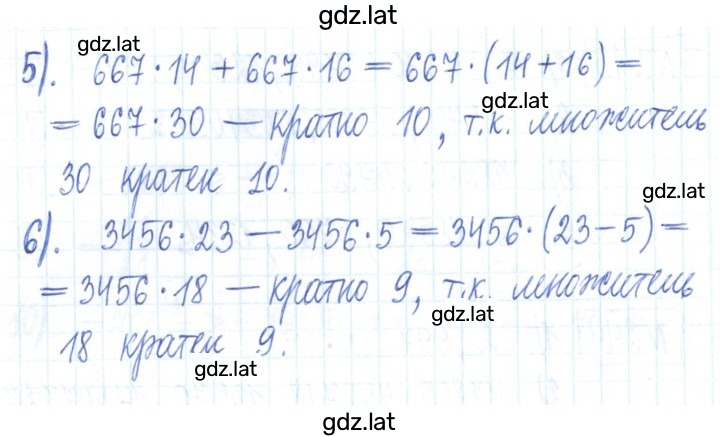 gdz.lat
gdz.lat
5). 667·14 + 667·16 = 667·(14+16) =
gdz.lat
= 667·30 — кратно 10, т.к. множитель
30 кратен 10.
gdz.lat
6). 3456·23 — 3456·5 = 3456·(23−5) =
= 3456·18 — кратно 9, т.к. множитель
gdz.lat
18 кратен 9.
gdz.lat
gdz.lat